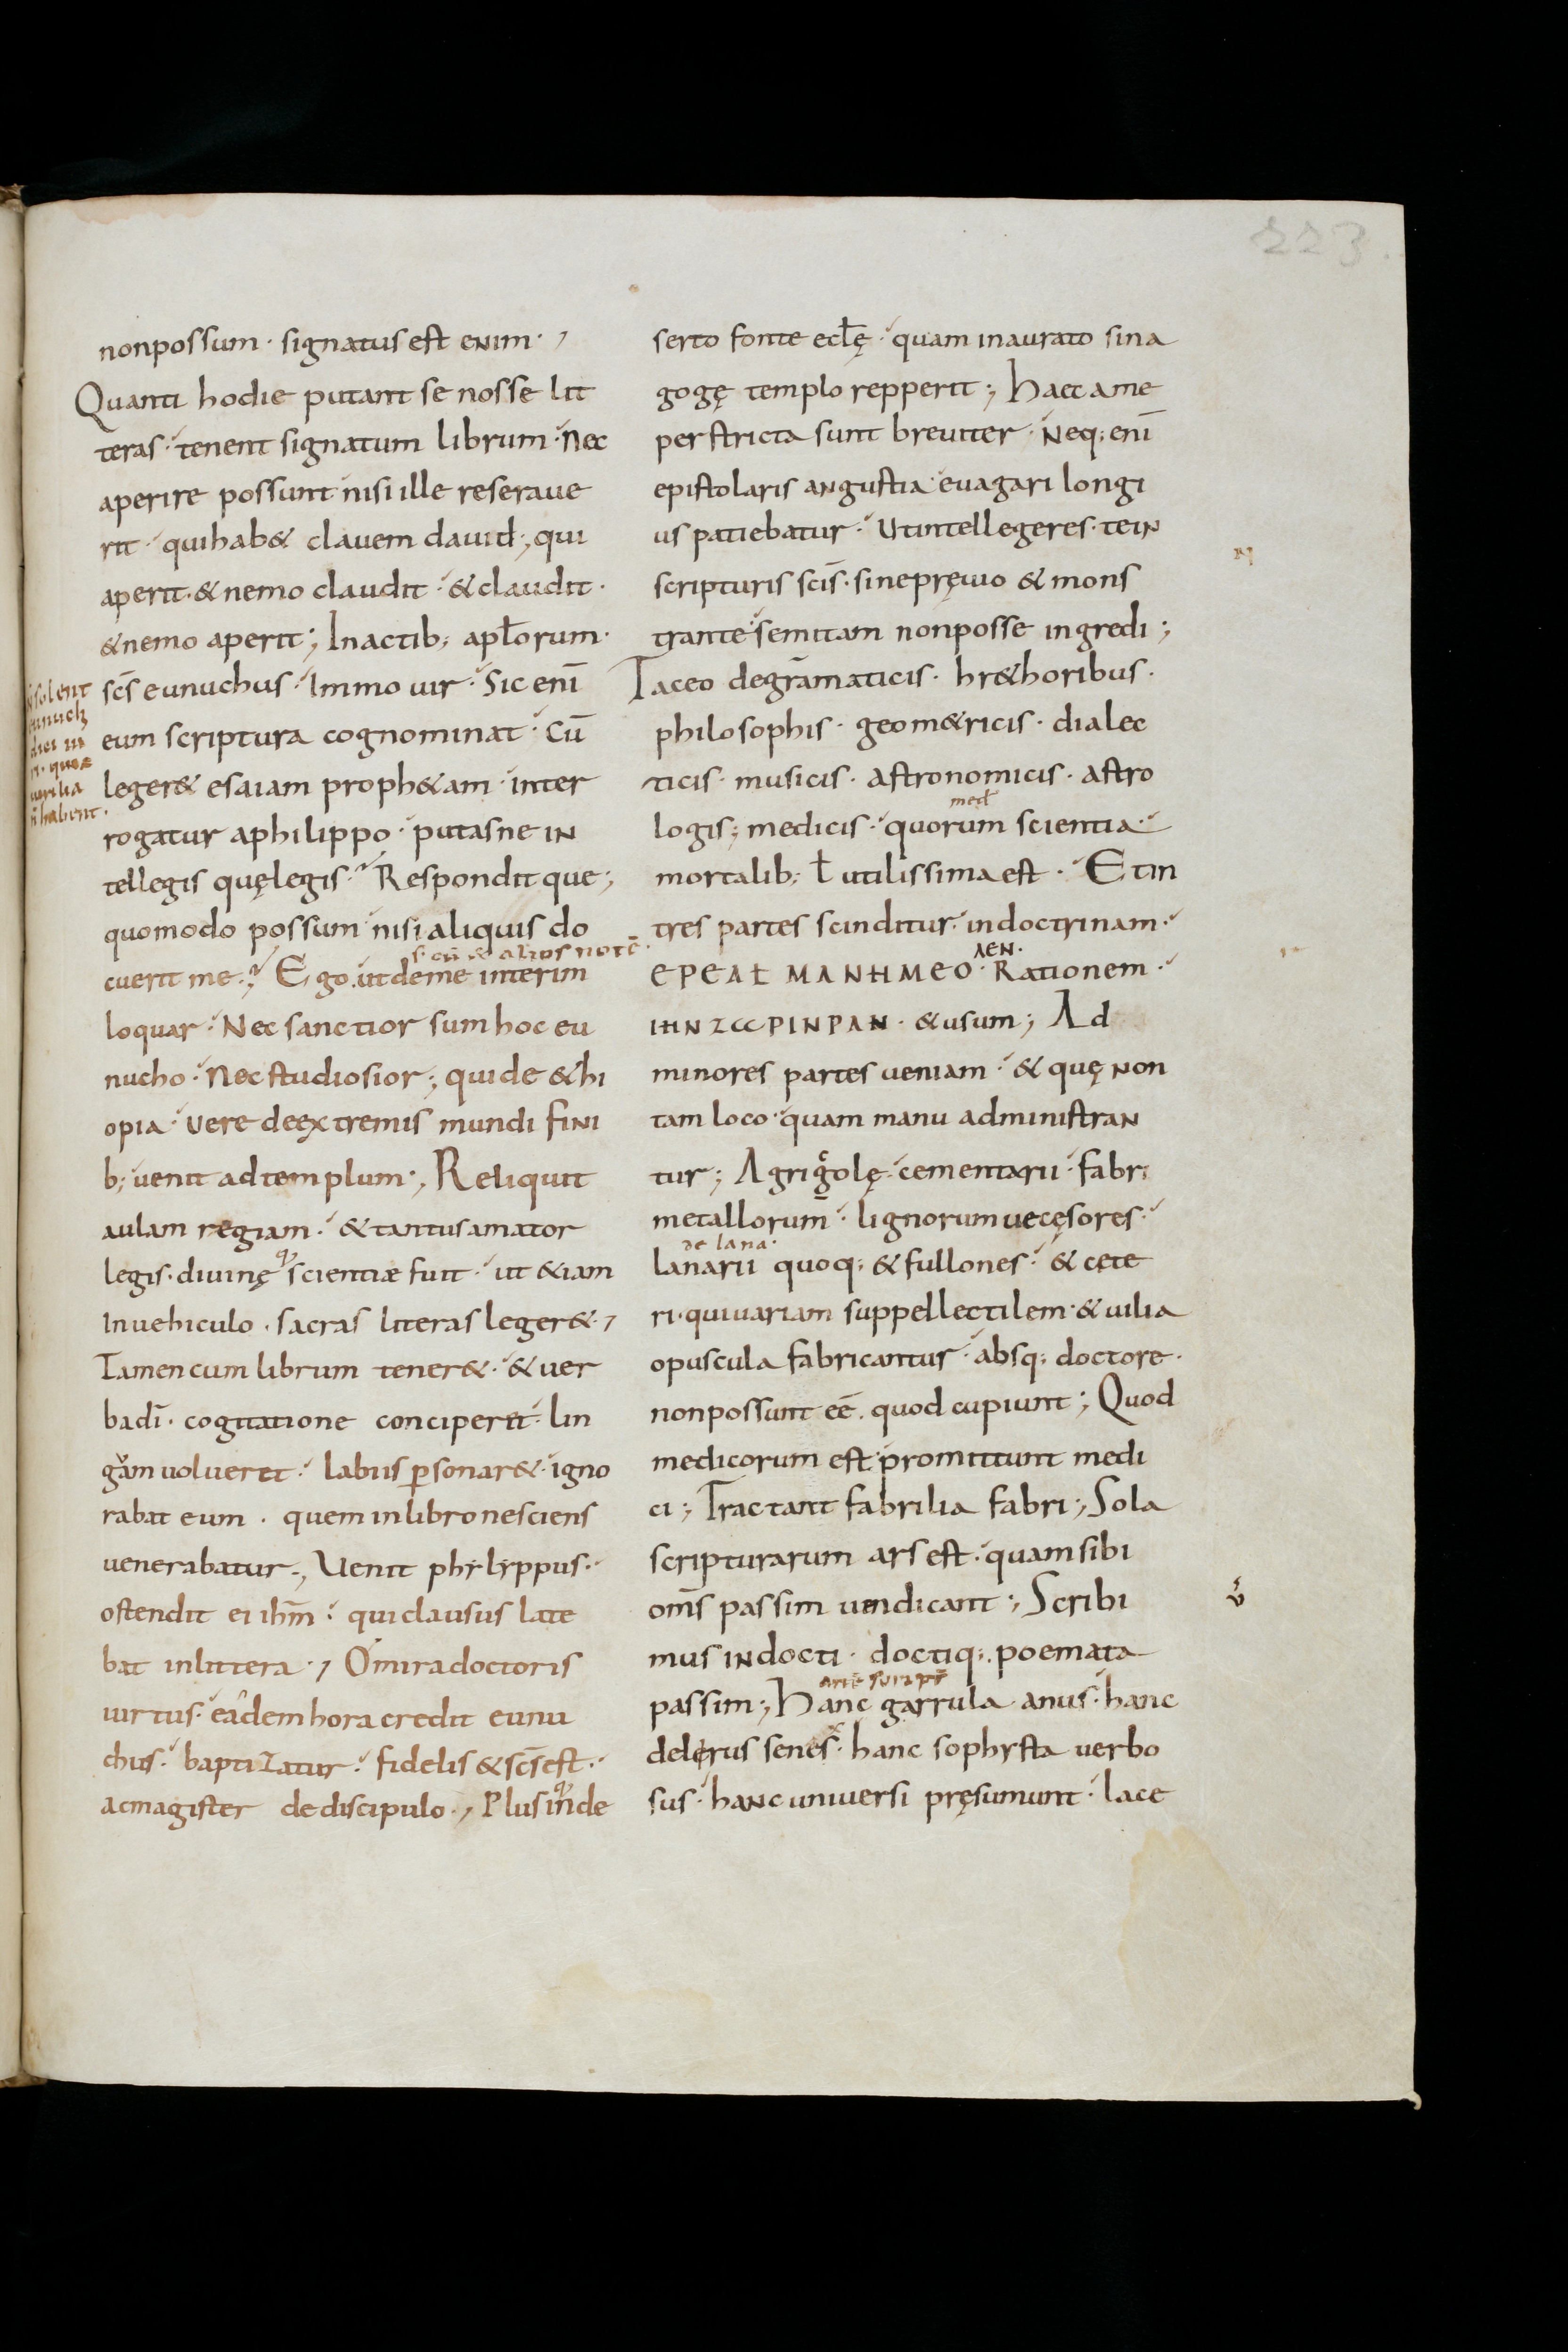 223.
nonpossum · signatus est enim · ,
Quanti hodie putant se nosse lit
teras · tenent signatum librum · Nec
aperire possunt nisi ille reseraue
rit · qui hab& clauem dauid ; qui
aperit · & nemo claudit · & claudit ·
& nemo aperit ; In actib; apłorum ·
scs̄ eunuchus · Immo uir · Sic enī
eum scriptura cognominat · Cū
leger& esaiam proph&am · inter
rogatur aphilippo · putasne in
tellegis quę legis · Respondit que ;
quomodo possum nisi aliquis do
cuerit me ; Ego · ut deme interim
loquar · Nec sanctior sum hoc eu
nucho · Nec studiosior ; qui de &hi
opia · uere deextremis mundi fini
b; uenit ad templum ·, Reliquit
aulam regiam · & tantus amator
legis · diuinę scientiæ fuit · ut &iam
In uehiculo · sacras literas leger& · ,
Tamen cum librum tener& · & uer
ba dī · cogitatione conciperet · lin
gam uolueret · labiis ꝑsonar& · igno
rabat eum · quem in libro nesciens
uenerabatur ·, Uenit phylyppus ·
ostendit ei ihm̄ · qui clausus late
bat in littera · , O mira doctoris
uirtus · eadem hora credit eunu
chus · baptizatur · fidelis & scs̄ est ·
ac magister de discipulo · , Plus inde
serto fonte ecłę · quam inaurato sina
gogę templo repperit ; Haec a me
perstricta sunt breuiter · Neq; enī
epistolaris angustia euagari longi
us patiebatur · Ut intellegeres · te in
scripturis scīs · sine pręuio & mons
trante semitam non posse ingredi ;
Taceo de grāmaticis · hr&horibus ·
philosophis · geom&ricis · dialec
ticis · musicis · astronomicis · astro
logis ; medicis · quorum scientia
mortalib; ł utilissima est · Et in
tres partes scinditur · in doctrinam ·
ΛEN ·
Rationem ·
& usum ; Ad
minores partes ueniam · & quę non
tam loco · quam manu administran
tur ; Agrigolę · cementarii · fabri
metallorum̄ · lignorum uecęsores ·
de lana ·
lanarii quoq; & fullones · & cęte
ri · qui uariam suppellectilem · & uilia
opuscula fabricantur · absq; doctore ·
non possunt eē · quod cupiunt ; Quod
medicorum est promittunt medi
ci ; Tractant fabrilia fabri ; Sola
scripturarum ars est · quam sibi
om̄s passim uendicant ; Scribi
mus indocti · doctiq; · poemata
passim ; Hanc garrula anus · hanc
delerus senes · hanc sophysta uerbo
sus · hanc uniuersi pręsumunt · lace